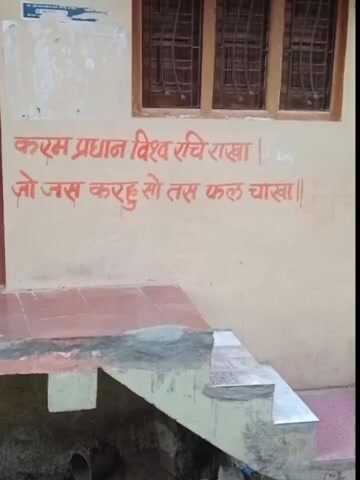 करम प्रधान विश्व रचि राखा |
जो जस करहु सो तस फल चाखा ||